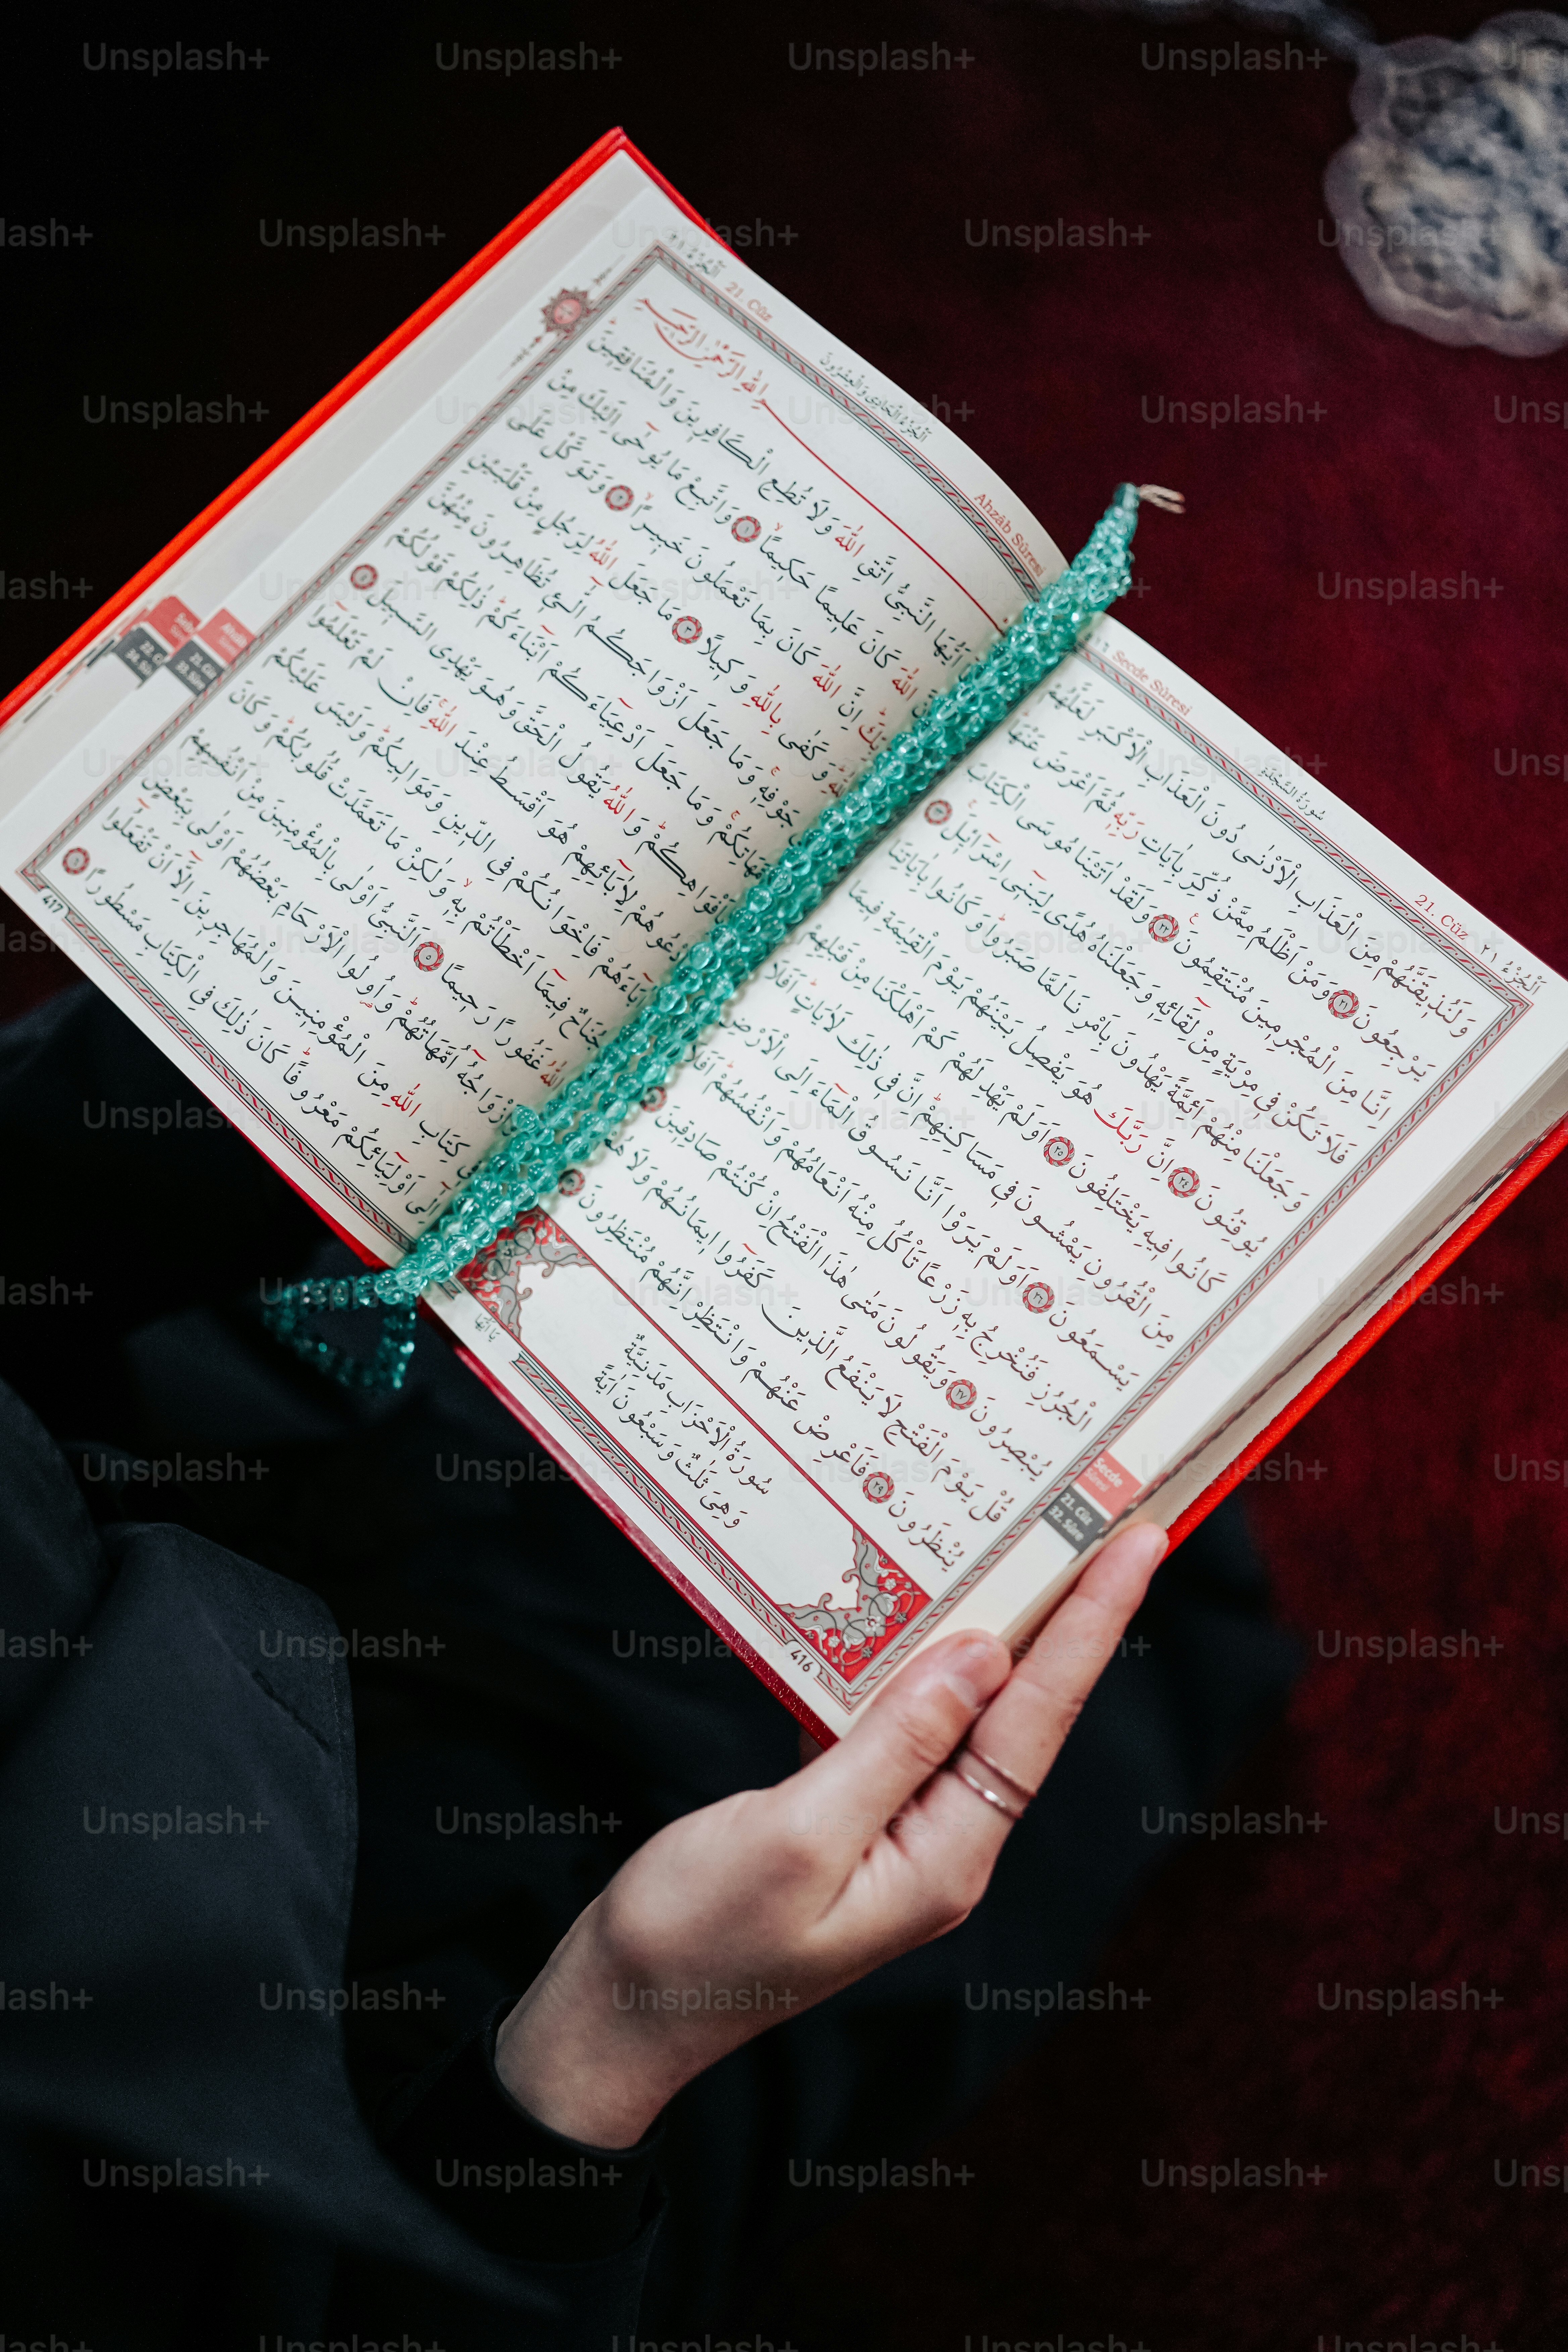 اَلْجُزْءُ ٢١ 21. Cüz
سُورَةُ السَّجْدَةِ
Secde Sûresi
وَلَنُذِيقَنَّهُمْ مِنَ الْعَذَابِ الْاَدْنٰى دُونَ الْعَذَابِ الْاَكْبَرِ لَعَلَّهُمْ
يَرْجِعُونَ ٢١ وَمَنْ اَظْلَمُ مِمَّنْ ذُكِّرَ بِاٰيَاتِ رَبِّهٖ ثُمَّ اَعْرَضَ عَنْهَاۜ
اِنَّا مِنَ الْمُجْرِمِينَ مُنْتَقِمُونَ ٢٢ وَلَقَدْ اٰتَيْنَا مُوسَى الْكِتَابَ
فَلَا تَكُنْ فِي مِرْيَةٍ مِنْ لِقَٓائِهِ وَجَعَلْنَاهُ هُدًى لِبَنِٓي اِسْرَٓائِلَۚ ٢٣
وَجَعَلْنَا مِنْهُمْ اَئِمَّةً يَهْدُونَ بِاَمْرِنَا لَمَّا صَبَرُواۜ وَكَانُوا بِاٰيَاتِنَا
يُوقِنُونَ ٢٤ اِنَّ رَبَّكَ هُوَ يَفْصِلُ بَيْنَهُمْ يَوْمَ الْقِيٰمَةِ فِيمَا
كَانُوا فِيهِ يَخْتَلِفُونَ ٢٥ اَوَلَمْ يَهْدِ لَهُمْ كَمْ اَهْلَكْنَا مِنْ قَبْلِهِمْ
مِنَ الْقُرُونِ يَمْشُونَ فِي مَسَاكِنِهِمْۜ اِنَّ فِي ذٰلِكَ لَاٰيَاتٍۜ اَفَلَا
يَسْمَعُونَ ٢٦ اَوَلَمْ يَرَوْا اَنَّا نَسُوقُ الْمَٓاءَ اِلَى الْاَرْضِ
الْجُرُزِ فَنُخْرِجُ بِهِ زَرْعًا تَأْكُلُ مِنْهُ اَنْعَامُهُمْ وَاَنْفُسُهُمْۜ اَفَلَا
يُبْصِرُونَ ٢٧ وَيَقُولُونَ مَتٰى هٰذَا الْفَتْحُ اِنْ كُنْتُمْ صَادِقِينَ
قُلْ يَوْمَ الْفَتْحِ لَا يَنْفَعُ الَّذِينَ كَفَرُٓوا اِيمَانُهُمْ وَلَا هُمْ
يُنْظَرُونَ ٢٩ فَاَعْرِضْ عَنْهُمْ وَانْتَظِرْ اِنَّهُمْ مُنْتَظِرُونَ
سُورَةُ الْاَحْزَابِ مَدَنِيَّةٌ
وَهِيَ ثَلٰثٌ وَسَبْعُونَ اٰيَةً
416
يَٓا اَيُّهَا
Secde Sûresi
21. Cüz
32. Sûre
Ahzâb Sûresi
اَلْجُزْءُ الْحَادِي وَالْعِشْرُونَ
21. Cüz اَلْجُزْءُ ٢١
اللّٰهِ الرَّحْمٰنِ الرَّحِيمِ
اَيُّهَا النَّبِيُّ اتَّقِ اللّٰهَ وَلَا تُطِعِ الْكَافِرِينَ وَالْمُنَافِقِينَۜ
اللّٰهَ كَانَ عَلِيمًا حَكِيمًاۙ ١ وَاتَّبِعْ مَا يُوحٰٓى اِلَيْكَ مِنْ
رَبِّكَۜ اِنَّ اللّٰهَ كَانَ بِمَا تَعْمَلُونَ خَبِيرًاۙ ٢ وَتَوَكَّلْ عَلَى
وَكَفٰى بِاللّٰهِ وَكِيلًا ٣ مَا جَعَلَ اللّٰهُ لِرَجُلٍ مِنْ قَلْبَيْنِ
جَوْفِهِۚ وَمَا جَعَلَ اَزْوَاجَكُمُ الّٰٓـ۪ٔي تُظَاهِرُونَ مِنْهُنَّ
اُمَّهَاتِكُمْۚ وَمَا جَعَلَ اَدْعِيَٓاءَكُمْ اَبْنَٓاءَكُمْۜ ذٰلِكُمْ قَوْلُكُمْ
بِاَفْوَاهِكُمْۜ وَاللّٰهُ يَقُولُ الْحَقَّ وَهُوَ يَهْدِي السَّبِيلَ ٤
اُدْعُوهُمْ لِاٰبَٓائِهِمْ هُوَ اَقْسَطُ عِنْدَ اللّٰهِۚ فَاِنْ لَمْ تَعْلَمُٓوا
اٰبَٓاءَهُمْ فَاِخْوَانُكُمْ فِي الدِّينِ وَمَوَالِيكُمْۜ وَلَيْسَ عَلَيْكُمْ
جُنَاحٌ فِيمَٓا اَخْطَأْتُمْ بِهِۙ وَلٰكِنْ مَا تَعَمَّدَتْ قُلُوبُكُمْۜ وَكَانَ
اللّٰهُ غَفُورًا رَحِيمًا ٥ اَلنَّبِيُّ اَوْلٰى بِالْمُؤْمِنِينَ مِنْ اَنْفُسِهِمْ
وَاَزْوَاجُهُٓ اُمَّهَاتُهُمْۜ وَاُو۬لُوا الْاَرْحَامِ بَعْضُهُمْ اَوْلٰى بِبَعْضٍ
كِتَابِ اللّٰهِ مِنَ الْمُؤْمِنِينَ وَالْمُهَاجِرِينَ اِلَّٓا اَنْ تَفْعَلُٓوا
اِلٰٓى اَوْلِيَٓائِكُمْ مَعْرُوفًاۜ كَانَ ذٰلِكَ فِي الْكِتَابِ مَسْطُورًا ٦
417